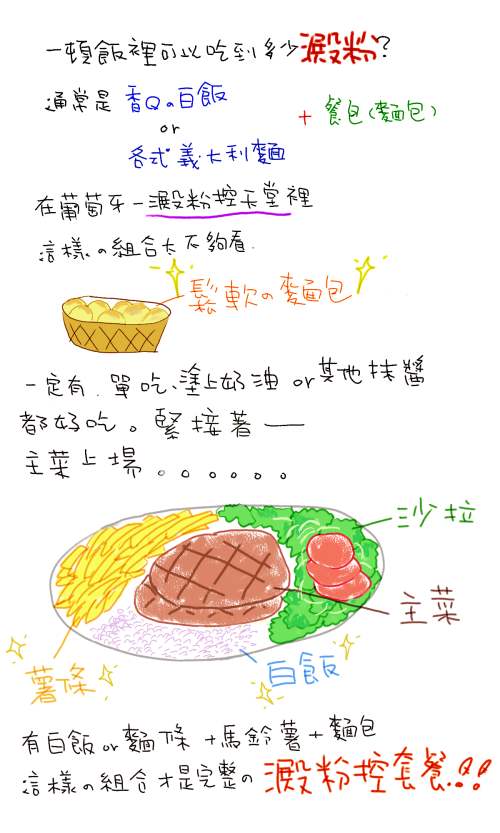 一頓飯裡可以吃到多少澱粉?
通常是 香Qの白飯
or
各式義大利麵
+ 餐包(麵包)
在葡萄牙-澱粉控天堂裡
這樣の組合太不夠看.
鬆軟の麵包
一定有.單吃、塗上奶油 or其他抹醬
都好吃。緊接著—
主菜上場。。。。。。
沙拉
主菜
白飯
薯條
有白飯or麵條+馬鈴薯+麵包
這樣の組合才是完整の澱粉控套餐!!